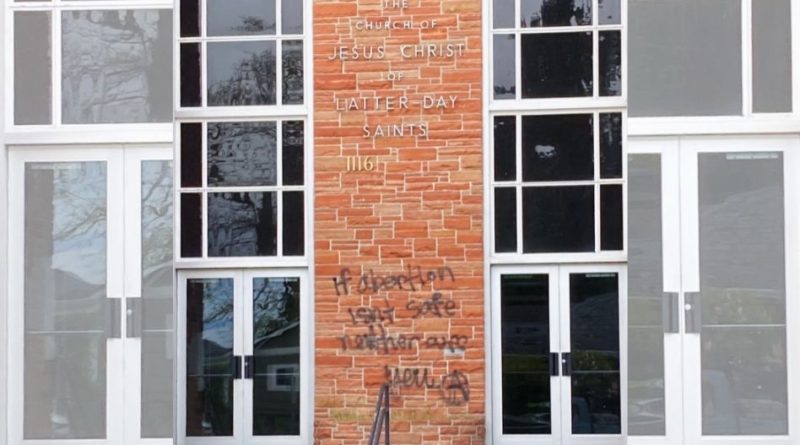 THE
CHURCH OF
JESUS CHRIST
OF
LATTER-DAY
SAINTS
1116
If abortion
isn't safe
neither are
you Ⓐ